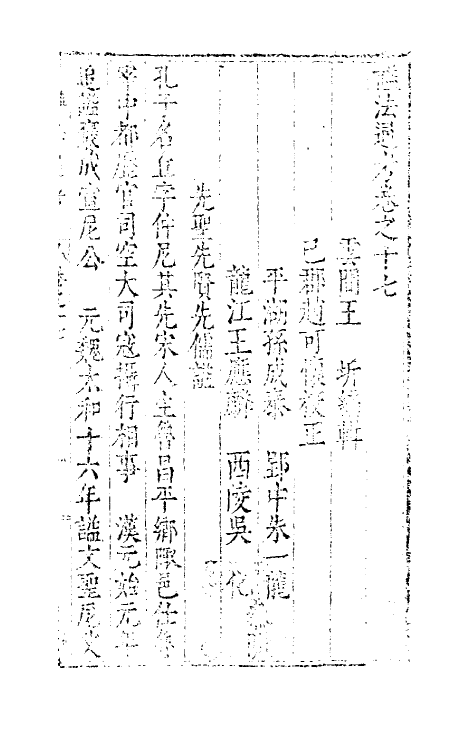 諡法通考卷之十七
雲間王 圻編輯
巴郡趙可懷校正
平湖孫成泰 郢中朱一龍
龍江王應麟 西陵吳 化
先聖先賢先儒諡
孔子名丘字仲尼其先宋人生魯昌平鄉陬邑仕魯
宰中都歷官司空大司寇攝行相事 漢元始元年
追諡褒成宣尼公 元魏太和十六年諡文聖尼父